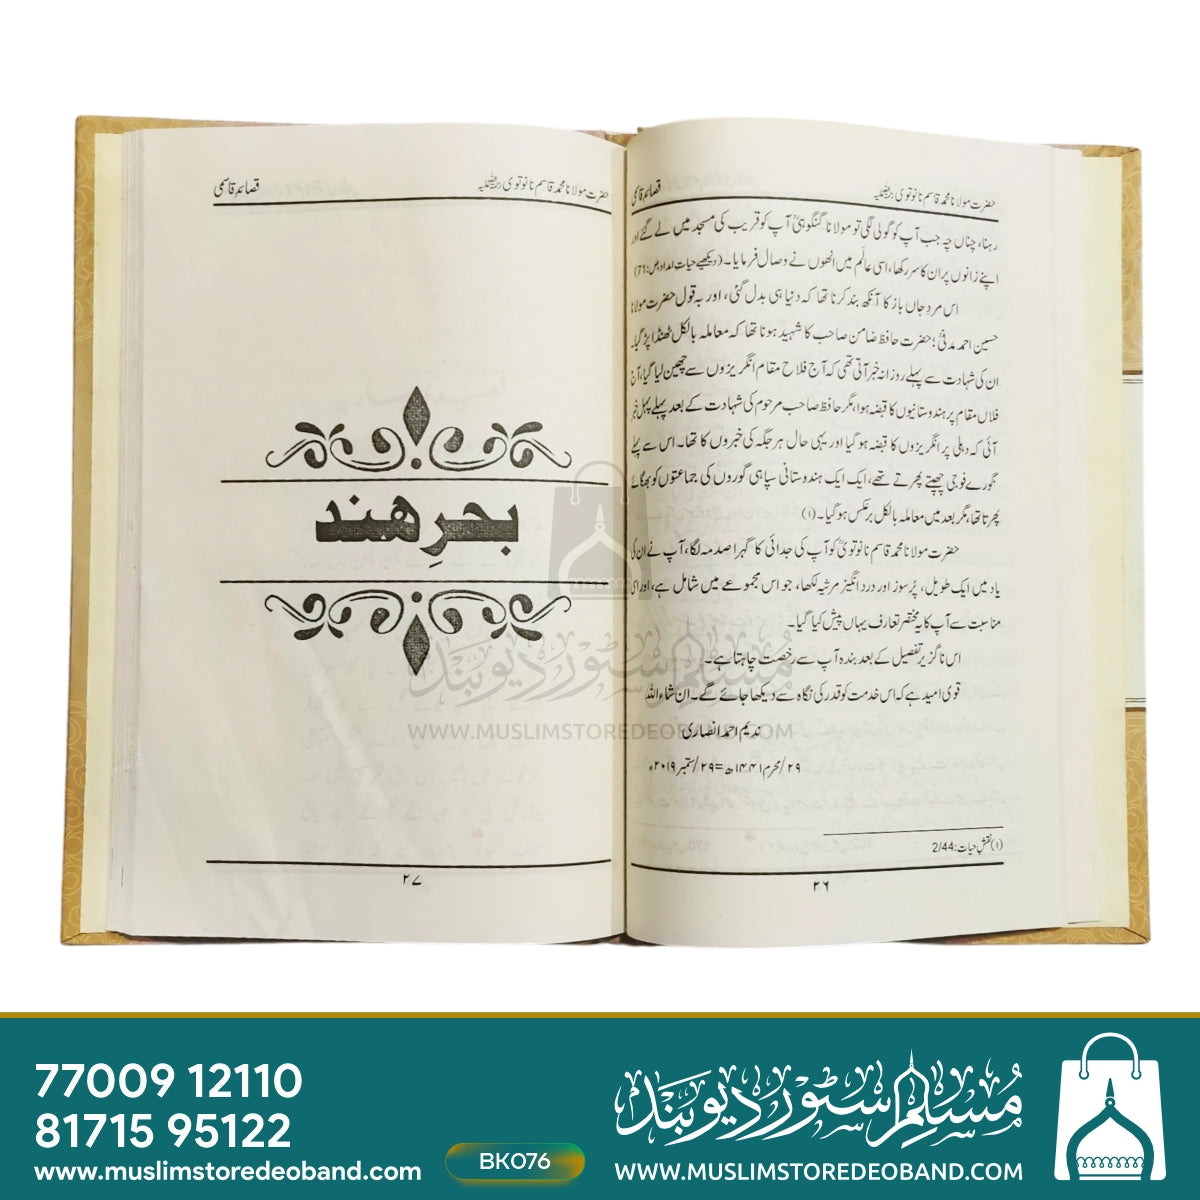 حضرت مولانا محمد قاسم نانوتوی رحمۃ اللہ علیہ
قصائدِ قاسمی
رہنا، چناں چہ جب آپ کو گولی لگی تو مولانا گنگوہیؒ آپ کو قریب کی مسجد میں لے گئے اور
اپنے زانوں پر ان کا سر رکھا، اسی عالَم میں انھوں نے وصال فرمایا۔ (دیکھیے حیات امداد، ص:71)
اس مردِ جاں باز کا آنکھ بند کرنا تھا کہ دنیا ہی بدل گئی، اور بہ قول حضرت مولانا
حسین احمد مدنیؒ؛ حضرت حافظ ضامن صاحب کا شہید ہونا تھا کہ معاملہ بالکل ٹھنڈا پڑ گیا۔
ان کی شہادت سے پہلے روزانہ خبر آتی تھی کہ آج فلاں مقام انگریزوں سے چھین لیا گیا، آج
فلاں مقام پر ہندوستانیوں کا قبضہ ہوا، مگر حافظ صاحب مرحوم کی شہادت کے بعد پہلے پہل خبر
آئی کہ دہلی پر انگریزوں کا قبضہ ہو گیا اور یہی حال ہر جگہ کی خبروں کا تھا۔ اس سے پہلے
گورے فوجی چھپتے پھرتے تھے، ایک ایک ہندوستانی سپاہی گوروں کی جماعتوں کو بھگائے
پھرتا تھا، مگر بعد میں معاملہ بالکل برعکس ہو گیا۔ (۱)
حضرت مولانا محمد قاسم نانوتویؒ کو آپ کی جدائی کا گہرا صدمہ لگا، آپ نے ان کی
یاد میں ایک طویل، پُرسوز اور درد انگیز مرثیہ لکھا، جو اس مجموعے میں شامل ہے، اور اسی
مناسبت سے آپ کا یہ مختصر تعارف یہاں پیش کیا گیا۔
اس ناگزیر تفصیل کے بعد بندہ آپ سے رخصت چاہتا ہے۔
قوی امید ہے کہ اس خدمت کو قدر کی نگاہ سے دیکھا جائے گے۔ ان شاء اللہ
ندیم احمد انصاری
۲۹/محرم ۱۴۴۱ھ=۲۹/ستمبر ۲۰۱۹ء
(۱) نقشِ حیات: 2/44
۲۶
حضرت مولانا محمد قاسم نانوتوی رحمۃ اللہ علیہ
قصائدِ قاسمی
بحرِ ھند
۲۷
مسلم سٹور دیوبند
WWW.MUSLIMSTOREDEOBAND.COM
77009 12110
81715 95122
www.muslimstoredeoband.com
BK076
مسلم سٹور دیوبند
WWW.MUSLIMSTOREDEOBAND.COM